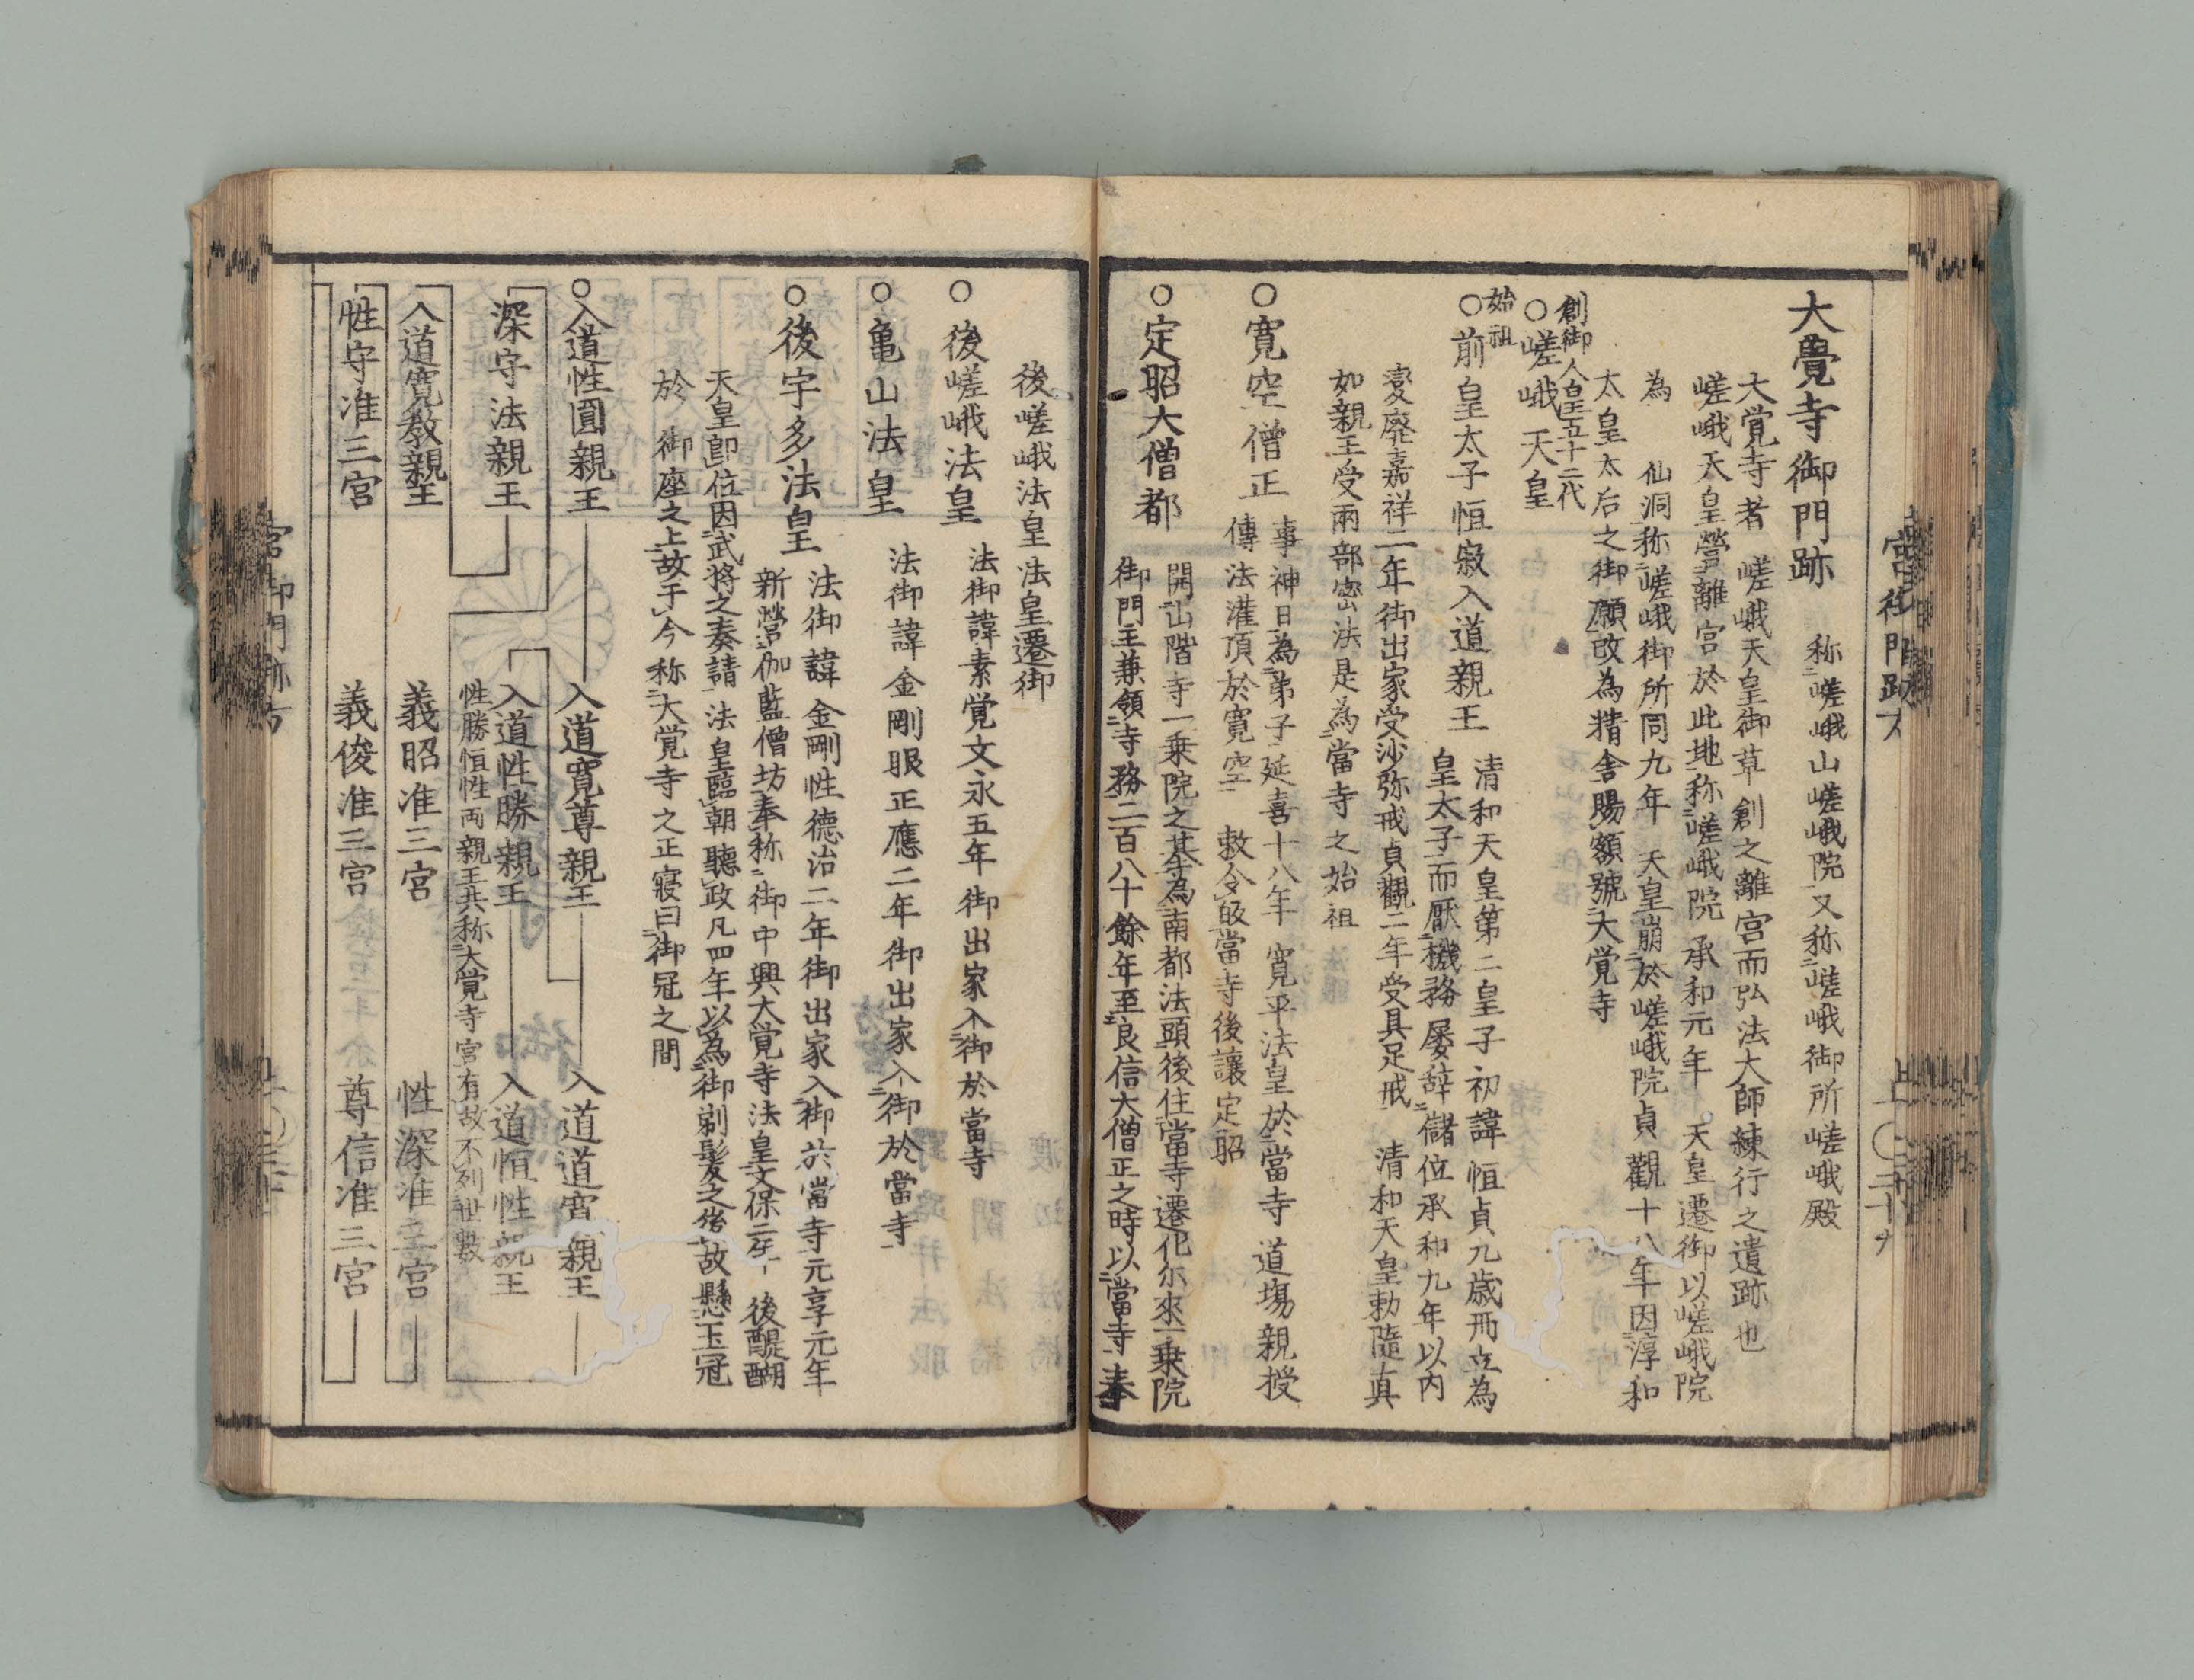 大覺寺御門跡
称嵯峨山嵯峨院又称嵯峨御所嵯峨殿
大覚寺者 嵯峨天皇御草創之離宮而弘法大師練行之遺跡也
嵯峨天皇營離宮於此地称嵯峨院 承和元年 天皇遷御以嵯峨院
為 仙洞称嵯峨御所同九年 天皇崩於嵯峨院貞觀十八年因淳和
太皇太后之御願改為精舎賜額號大覚寺
創御 人皇五十二代
○嵯峨天皇
始祖
○前皇太子恒寂入道親王
清和天皇第二皇子初諱恒貞九歳冊立為
皇太子而厭機務屡辞儲位承和九年以内
変廃嘉祥二年御出家受沙弥戒貞觀二年受具足戒 清和天皇勅隨真
如親王受両部密法是為當寺之始祖
○寛空僧正
事神日為弟子延喜十八年 寛平法皇於當寺 道場親授
傳法灌頂於寛空 敕令皈當寺後讓定昭
○定昭大僧都
開山階寺一乗院之基為南都法頭後住當寺遷化尓來一乗院
御門主兼領寺務二百八十餘年至良信大僧正之時以當寺奉
後嵯峨法皇法皇遷御
○後嵯峨法皇
法御諱素覚文永五年御出家入御於當寺
○亀山法皇
法御諱金剛眼正應二年御出家入御於當寺
○後宇多法皇
法御諱金剛性德治二年御出家入御於當寺元享元年
新營伽藍僧坊奉称御中興大覚寺法皇文保二年 後醍醐
天皇即位因武将之奏請 法皇臨朝聽政凡四年以為御剃髪之後故懸玉冠
於 御座之上故于今称大覚寺之正寝曰御冠之間
○入道性圓親王
入道寛尊親王
入道道寛親王
深守法親王
入道性勝親王
入道恒性親王
性勝恒性両親王共称大覚寺宮有故不列世數
入道寛教親王
義昭准三宮
性深准三宮
性守准三宮
義俊准三宮
尊信准三宮